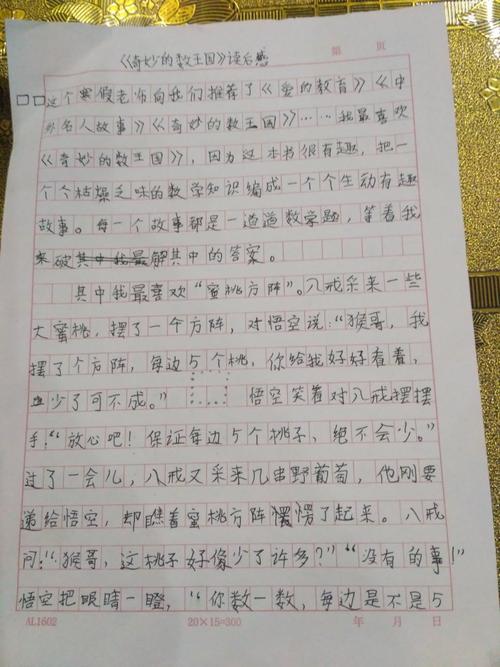 《奇妙的数王国》读后感
第 页
这个寒假老师向我们推荐了《爱的教育》《中
外名人故事》《奇妙的数王国》……我最喜欢
《奇妙的数王国》，因为这本书很有趣，把一
个个枯燥乏味的数学知识编成一个个生动有趣
故事。每一个故事都是一道道数学题，等着我
来破其中我最解其中的答案。
其中我最喜欢“蜜桃方阵”。八戒采来一些
大蜜桃，摆了一个方阵，对悟空说：“猴哥，我
摆了个方阵，每边5个桃，你给我好好看着，
少了可不成。” 悟空笑着对八戒摆摆
手：“放心吧！保证每边5个桃子、绝不会少。”
过了一会儿，八戒又采来几串野葡萄，他刚要
递给悟空，却瞧着蜜桃方阵愣了起来。八戒
问：“猴哥，这桃子好像少了许多？”“没有的事！”
悟空把眼睛一瞪，“你数一数，每边是不是5
AL1602
20×15=300
年 月 日